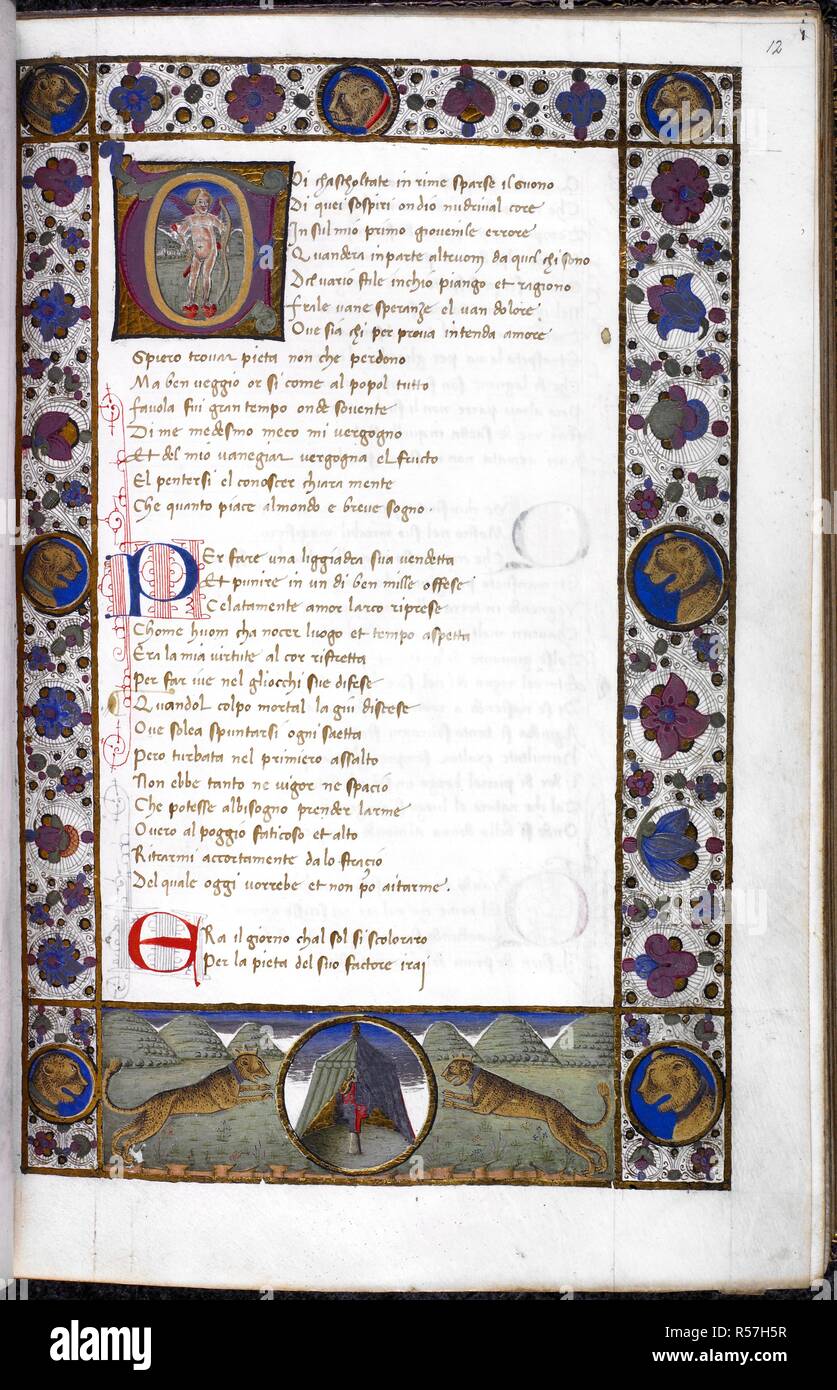 12
Oi chascholtate in rime sparse il suono
Di quei sospiri ondio nudrival core
In sul mio primo giovenile errore
Quandera inparte altruom da quel chi sono
Del vario stile inchio piango et ragiono
frale vane speranze el van dolore
Ove sia chi per prova intenda amore
Spiero trovar pieta non che perdono
Ma ben veggio or si come al popol tutto
favola fui gran tempo onde sovente
Di me medesmo meco mi vergogno
Et del mio vanegiar vergogna el fructo
El pentersi el conoscer chiara mente
Che quanto piace almondo e breve sogno.
Per fare una liggiadra sua vendetta
Et punire in un di ben mille offese
Celatamente amor larco riprese
Chome huom cha nocer luogo et tempo aspetta
Era la mia virtute al cor ristretta
Per far ive nel gliocchi sue difese
Quandol colpo mortal la giu discese
Ove solea spuntarsi ogni saetta
Pero turbata nel primiero assalto
Non ebbe tanto ne vigor ne spacio
Che potesse albisogno prender larme
Overo al poggio faticoso et alto
Ritrarmi accortamente da lo stracio
Del quale oggi vorrebe et non po aitarme.
Era il giorno chal sol si scoloraro
Per la pieta del suo factore irai
alamy
Image ID: R57H5R
www.alamy.com